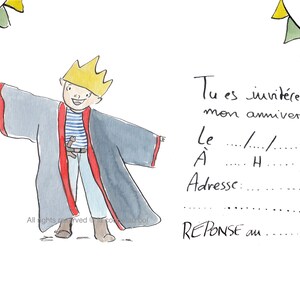 Tu es invité
mon anniver
Le ..../..../.....
À ..... H ....
Adresse: ........
....................
REPONSE au .......
All rights reserved